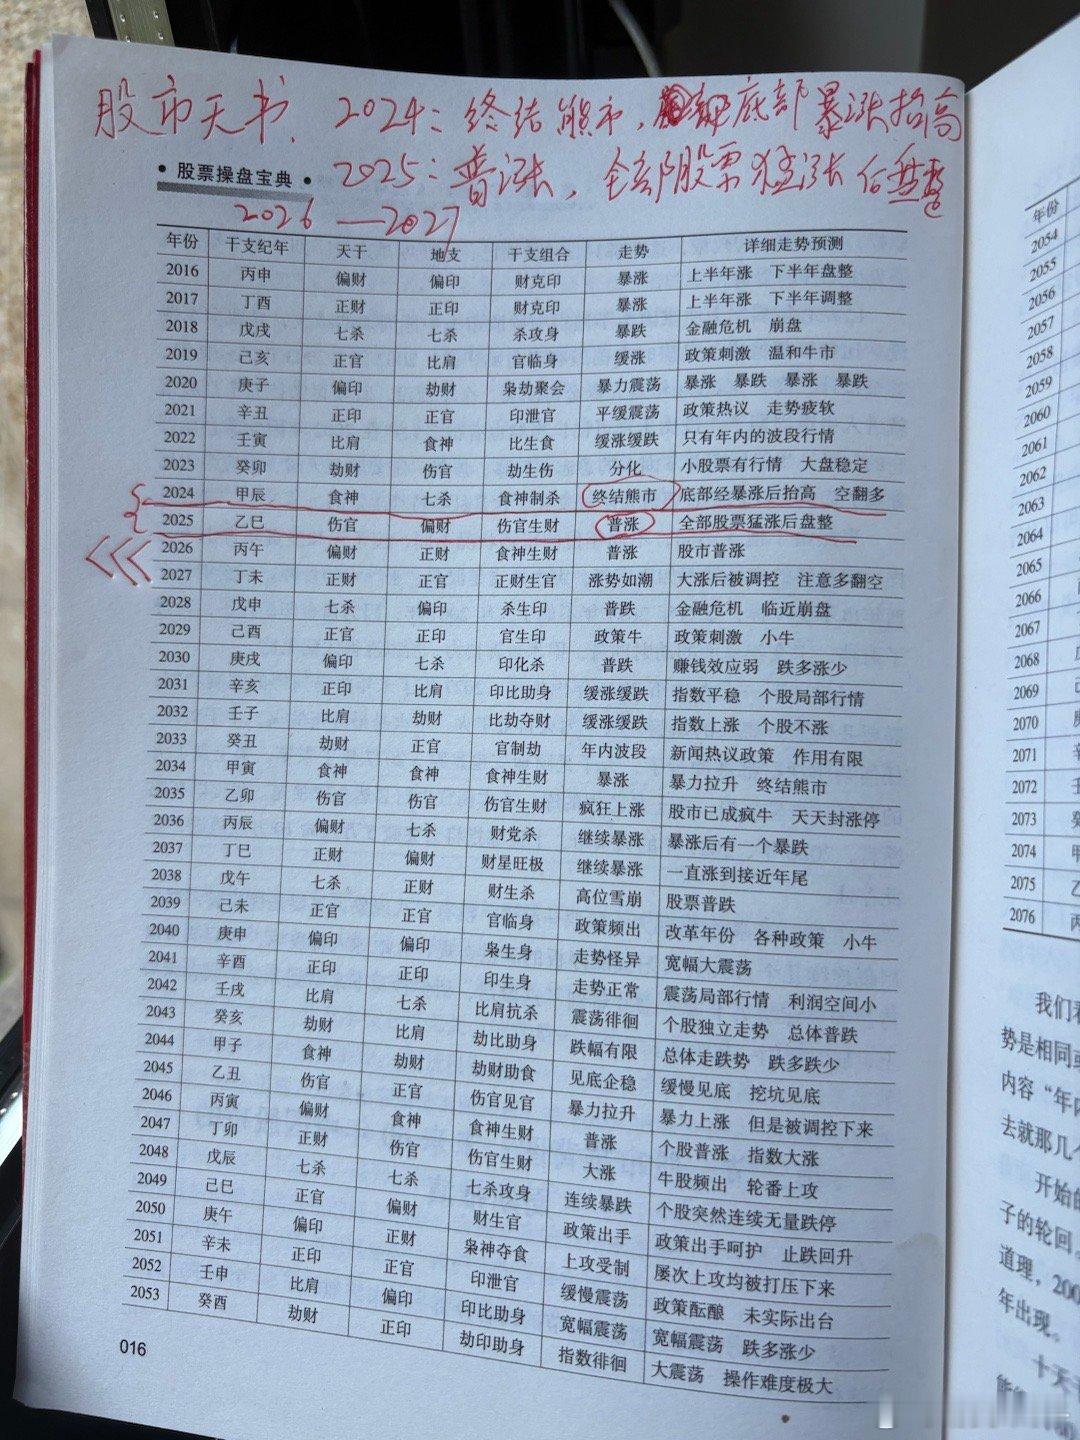 股市天书、2024：终结熊市，底部暴涨抬高
• 股票操盘宝典 •
2025：普涨，全部股票猛涨后盘整
2026—2027
年份 干支纪年 天干 地支 干支组合 走势 详细走势预测
2016 丙申 偏财 偏印 财克印 暴涨 上半年涨 下半年盘整
2017 丁酉 正财 正印 财克印 暴涨 上半年涨 下半年调整
2018 戊戌 七杀 七杀 杀攻身 暴跌 金融危机 崩盘
2019 己亥 正官 比肩 官临身 缓涨 政策刺激 温和牛市
2020 庚子 偏印 劫财 枭劫聚会 暴力震荡 暴涨 暴跌 暴涨 暴跌
2021 辛丑 正印 正官 印泄官 平缓震荡 政策热议 走势疲软
2022 壬寅 比肩 食神 比生食 缓涨缓跌 只有年内的波段行情
2023 癸卯 劫财 伤官 劫生伤 分化 小股票有行情 大盘稳定
2024 甲辰 食神 七杀 食神制杀 终结熊市 底部经暴涨后抬高 空翻多
2025 乙巳 伤官 偏财 伤官生财 普涨 全部股票猛涨后盘整
2026 丙午 偏财 正财 食神生财 普涨 股市普涨
2027 丁未 正财 正官 正财生官 涨势如潮 大涨后被调控 注意多翻空
2028 戊申 七杀 偏印 杀生印 普跌 金融危机 临近崩盘
2029 己酉 正官 正印 官生印 政策牛 政策刺激 小牛
2030 庚戌 偏印 七杀 印化杀 普跌 赚钱效应弱 跌多涨少
2031 辛亥 正印 比肩 印比助身 缓涨缓跌 指数平稳 个股局部行情
2032 壬子 比肩 劫财 比劫夺财 缓涨缓跌 指数上涨 个股不涨
2033 癸丑 劫财 正官 官制劫 年内波段 新闻热议政策 作用有限
2034 甲寅 食神 食神 食神生财 暴涨 暴力拉升 终结熊市
2035 乙卯 伤官 伤官 伤官生财 疯狂上涨 股市已成疯牛 天天封涨停
2036 丙辰 偏财 七杀 财党杀 继续暴涨 暴涨后有一个暴跌
2037 丁巳 正财 偏财 财星旺极 继续暴涨 一直涨到接近年尾
2038 戊午 七杀 正财 财生杀 高位雪崩 股票普跌
2039 己未 正官 正官 官临身 政策频出 改革年份 各种政策 小牛
2040 庚申 偏印 偏印 枭生身 走势怪异 宽幅大震荡
2041 辛酉 正印 正印 印生身 走势正常 震荡局部行情 利润空间小
2042 壬戌 比肩 七杀 比肩抗杀 震荡徘徊 个股独立走势 总体普跌
2043 癸亥 劫财 比肩 劫比助身 跌幅有限 总体走跌势 跌多跌少
2044 甲子 食神 劫财 劫财助食 见底企稳 缓慢见底 挖坑见底
2045 乙丑 伤官 正官 伤官见官 暴力拉升 暴力上涨 但是被调控下来
2046 丙寅 偏财 食神 食神生财 普涨 个股普涨 指数大涨
2047 丁卯 正财 伤官 伤官生财 大涨 牛股频出 轮番上攻
2048 戊辰 七杀 七杀 七杀攻身 连续暴跌 个股突然连续无量跌停
2049 己巳 正官 偏财 财生官 政策出手 政策出手呵护 止跌回升
2050 庚午 偏印 正财 枭神夺食 上攻受制 屡次上攻均被打压下来
2051 辛未 正印 正官 印泄官 缓慢震荡 政策酝酿 未实际出台
2052 壬申 比肩 偏印 印比助身 宽幅震荡 宽幅震荡 跌多涨少
2053 癸酉 劫财 正印 劫印助身 指数徘徊 大震荡 操作难度极大
016
年份
2054
2055
2056
2057
2058
2059
2060
2061
2062
2063
2064
2065
2066
2067
2068
2069
2070
2071
2072
2073
2074 甲
2075 乙
2076 丙
我们看
势是相同或
内容“年内
去就那几个
开始的
子的轮回。
道理，200
年出现。
十天干